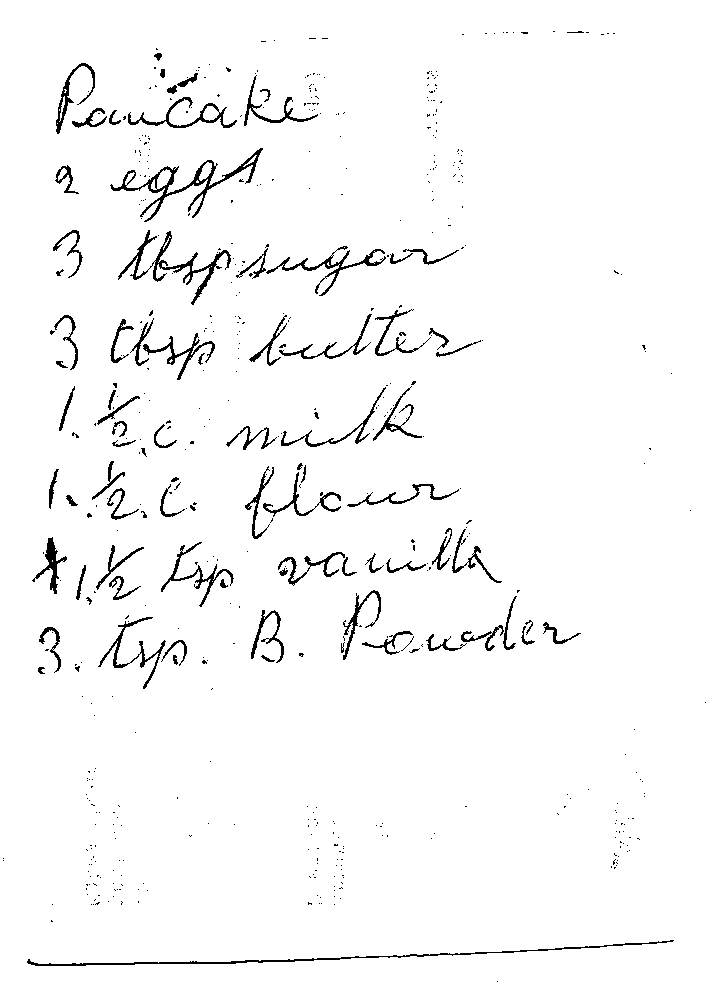 Pancake
2 eggs
3 tbsp sugar
3 tbsp butter
1. 1/2 c. milk
1. 1/2. c. flour
1. 1/2 tsp vanilla
3. tsp. B. Powder